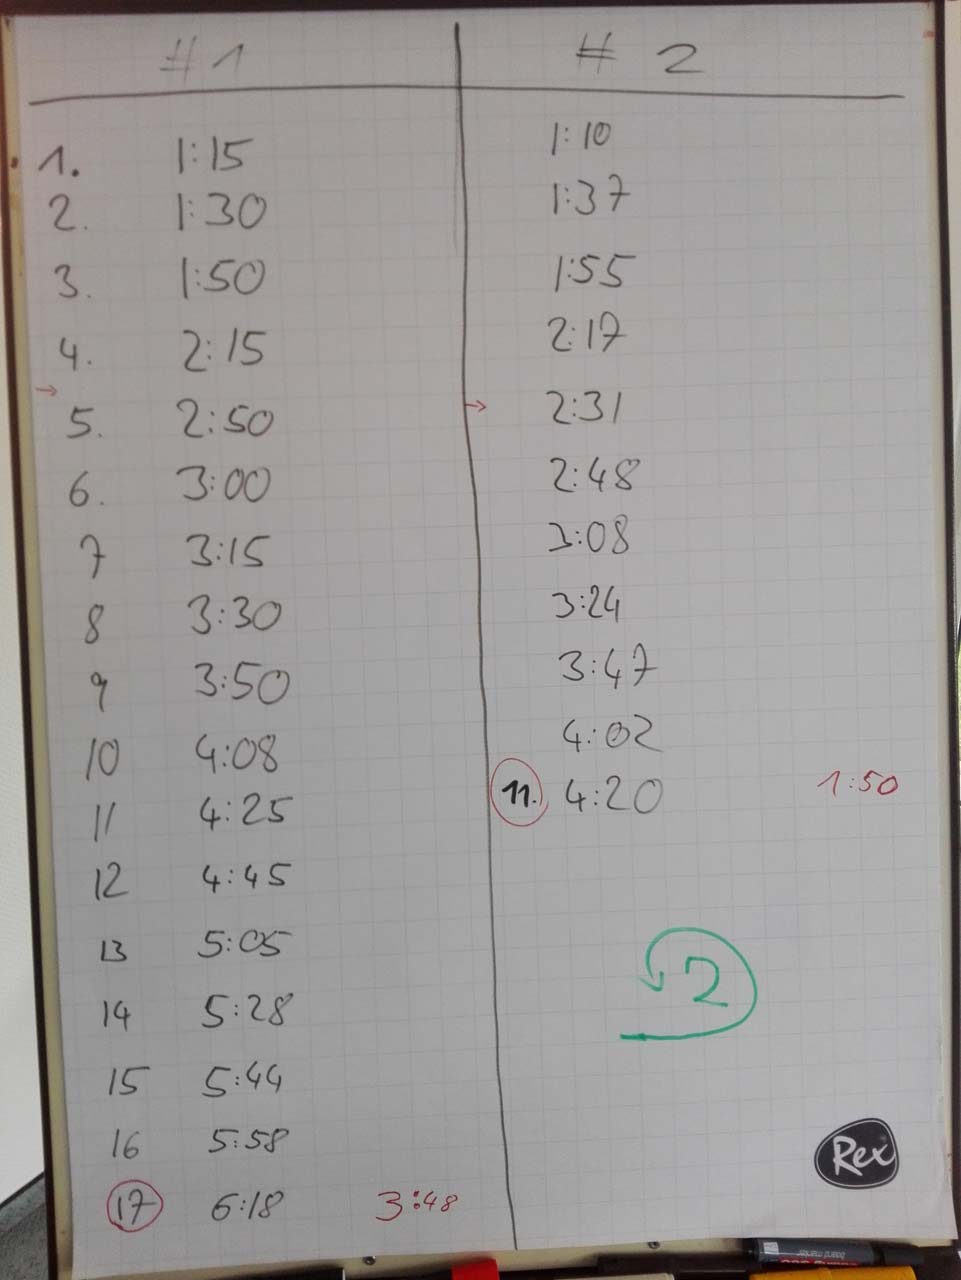 #1 # 2
1. 1:15 1:10
2. 1:30 1:37
3. 1:50 1:55
4. 2:15 2:17
→ 5. 2:50 → 2:31
6. 3:00 2:48
7 3:15 3:08
8 3:30 3:24
9 3:50 3:47
10 4:08 4:02
11 4:25 11. 4:20 1:50
12 4:45
13 5:05
2
14 5:28
15 5:44
16 5:58
Rex
17 6:18 3:48
board marker